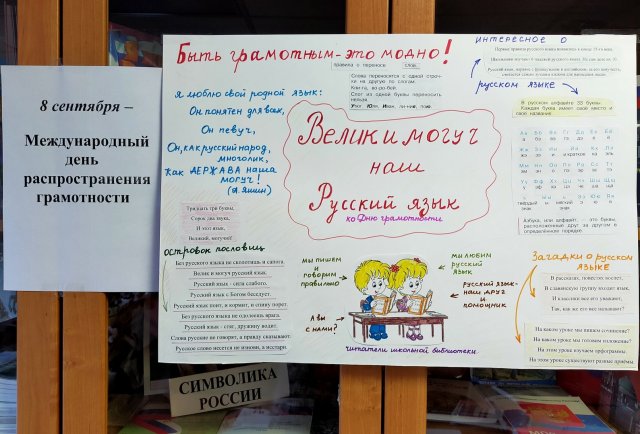 8 сентября –
Международный
день
распространения
грамотности
Быть грамотным - это модно!
правила о переносе слов.
Слова переносятся с одной строч-
ки на другую по слогам.
Слог из одной буквы переносить
нельзя.
Я люблю свой родной язык:
Он понятен для всех,
Он певуч,
Он, как русский народ,
многолик,
Как ДЕРЖАВА наша
могуч!
(Я. Яшин)
Велик и могуч
наш
Русский язык
ко Дню грамотности
интересное о
русском языке
В русском алфавите 33 буквы.
Каждая буква имеет своё место и
своё название.
Азбука, или алфавит, – это буквы,
расположенные друг за другом в
определённом порядке.
Тридцать три буквы,
Сорок два звука,
И это язык,
Великий, могучий!
островок пословиц
Без русского языка не сколотишь и сапога.
Велик и могуч русский язык.
Русский язык - сила слабого.
Русский язык с Богом беседует.
Русский язык поит, и кормит, и спину порет.
Без русского языка не одолеешь врага.
Русский язык - стяг, дружину водит.
Слова русские не говорит, а правду сказывает.
Русское слово несется не изнова, а исстари.
мы пишем
и
говорим
правильно
мы любим
русский
язык
русский язык-
наш друг
и
помощник
А вы
с нами?
читатели школьной библиотеки
Загадки о русском
языке
В рассказах, повестях воспет,
В славянскую группу входит язык,
И классики все его уважают,
Так, как же его все называют?
На каком уроке мы пишем сочинение?
На каком уроке мы готовим изложение?
На этом уроке изучаем орфограммы.
На этом уроке существуют разные приёмы.
СИМВОЛИКА
РОССИИ